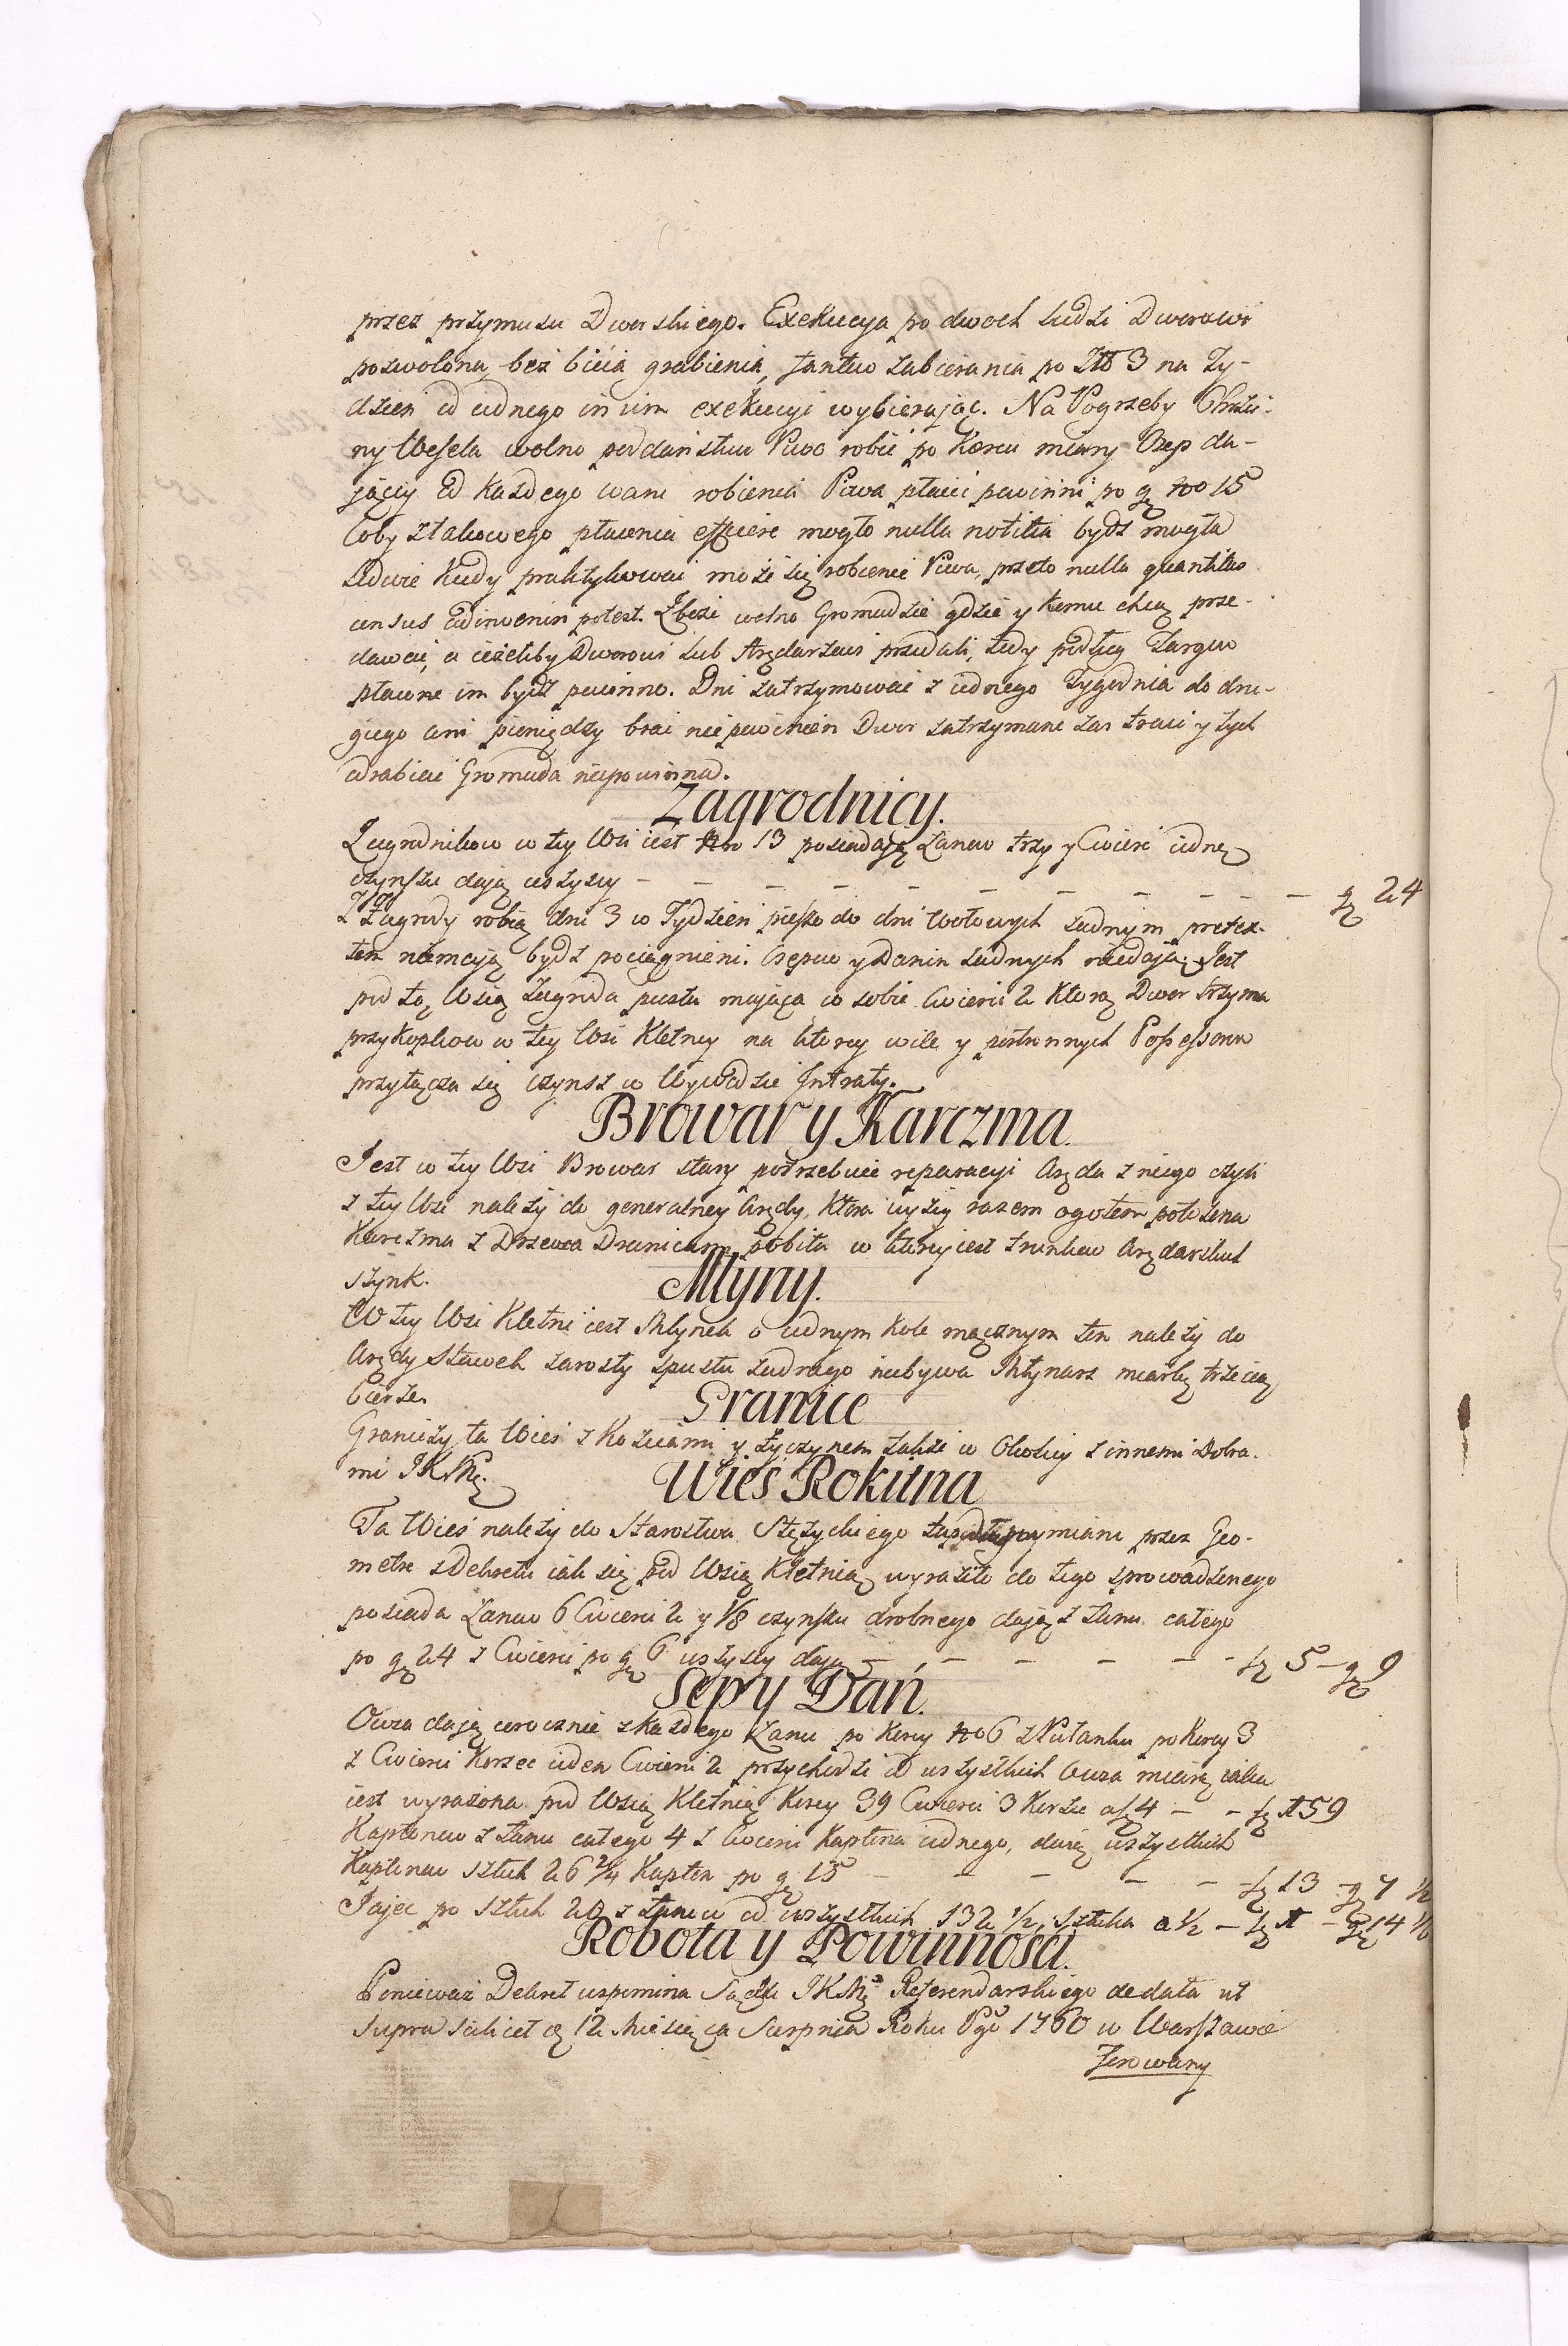 przez przymusu Dworskiego. Exekucya po dwoch ludzi Dworowi
pozwolona, bez bicia grabienia, fantow zabierania po Zł 3 na Ty-
dzien od iednego in vim exekucyi wybieraiąc. Na Pogrzeby Chrzci-
ny Wesela wolno poddaństwu Piwo robic po Korcu miary Osep da-
jący od Każdego waru robienia Piwa płacic powinni po gr No 15
Coby z takowego płacenia efficere mogło nulla notitia bydz mogła
ledwie Kiedy praktykowac może się robienie Piwa, przeto nulla quantitas
census adinvenire potest. Zboże wolno Gromadzie gdzie y komu chcą prze-
dawać, a ieżeliby Dworowi lub Arędarzowi przedali, tedy podług Targu
płacone im bydź powinno. Dni zatrzymować z iednego Tygodnia do dru-
giego ani pieniędzy brać niepowinien Dwor zatrzymane zas traci y tych
odrabiać Gromada niepowinna.
Zagrodnicy.
Zagrodnikow w tey Wsi iest No 13 posiadaią Łanow trzy y Cwierć iedną
czynszu daią wszyscy - - - - - - - - - - gr 24
Z Zagrody robią dni 3 w Tydzień pieszo do dni Wołowych żadnym pretex-
tem niemaią bydz pociągnieni. Osepow y Danin żadnych niedaią. Jest
pod tą Wsią Zagroda pusta mająca w sobie Cwierci 2 Ktorą Dwor trzyma
przykopkow w tey Wsi Kletney na ktorey wiele y postronnych Possessorow
przyłącza się czynsz w Wywodzie Intraty.
Browar y Karczma.
Jest w tey Wsi Browar stary potrzebuie reparacyi Aręda z niego czyli
z tey Wsi należy do generalney Arędy, Ktora wyżey razem ogołem położona
Karczma z Drzewa Dranicami pobita w ktorey iest trunkow Arędarskich
szynk.
Młyny.
W tey Wsi Kletni iest Młynek o iednym Kole mącznym ten należy do
Arędy Stawek zarosły spustu żadnego niebywa Młynarz miarkę trzecią
bierze.
Granice
Graniczy ta Wieś z Kozicami y Życzynem także w Okolicy z innemi Dobra-
mi JKMci.
Wieś Rokitna
Ta Wieś należy do Starostwa Stężyckiego pomiaru przez Geo-
metrę z Dekretu iak się pod Wsią Kletnią wyraziło do tego sprowadzonego
posiada Łanow 6 Cwierci 2 y 1/8 czynszu drobnego daią z Łanu całego
po gr 24 z Cwierci po gr 6 wszyscy daią - - - - - - zł 5 - gr 9
Sepy Dań.
Owsa daią corocznie z każdego Łanu po Korcy No 6 z Pułanku po Korcy 3
z Cwierci Korzec ieden Cwierci 2 przychodzi od wszystkich Owsa miarą iaka
iest wyrażona pod Wsią Kletnią Korcy 39 Cwierci 3 Korzec a zł 4 - - zł 159
Kapłonow z Łanu całego 4 z Cwierci Kapłona iednego, daią wszystkich
Kapłonow sztuk 26 2/4 Kapłon po gr 15 - - - - - - zł 13 - gr 7 1/2
Jajec po sztuk 20 z Łanu od wszystkich 132 1/2, sztuka a 1/2 - zł - gr 14 1/8
Robota y Powinności.
Ponieważ Dekret wspomina Sądu JKMci Referendarskiego de data ut
supra scilicet 12 Miesiąca Sierpnia Roku Pgo 1760 w Warszawie
ferowany